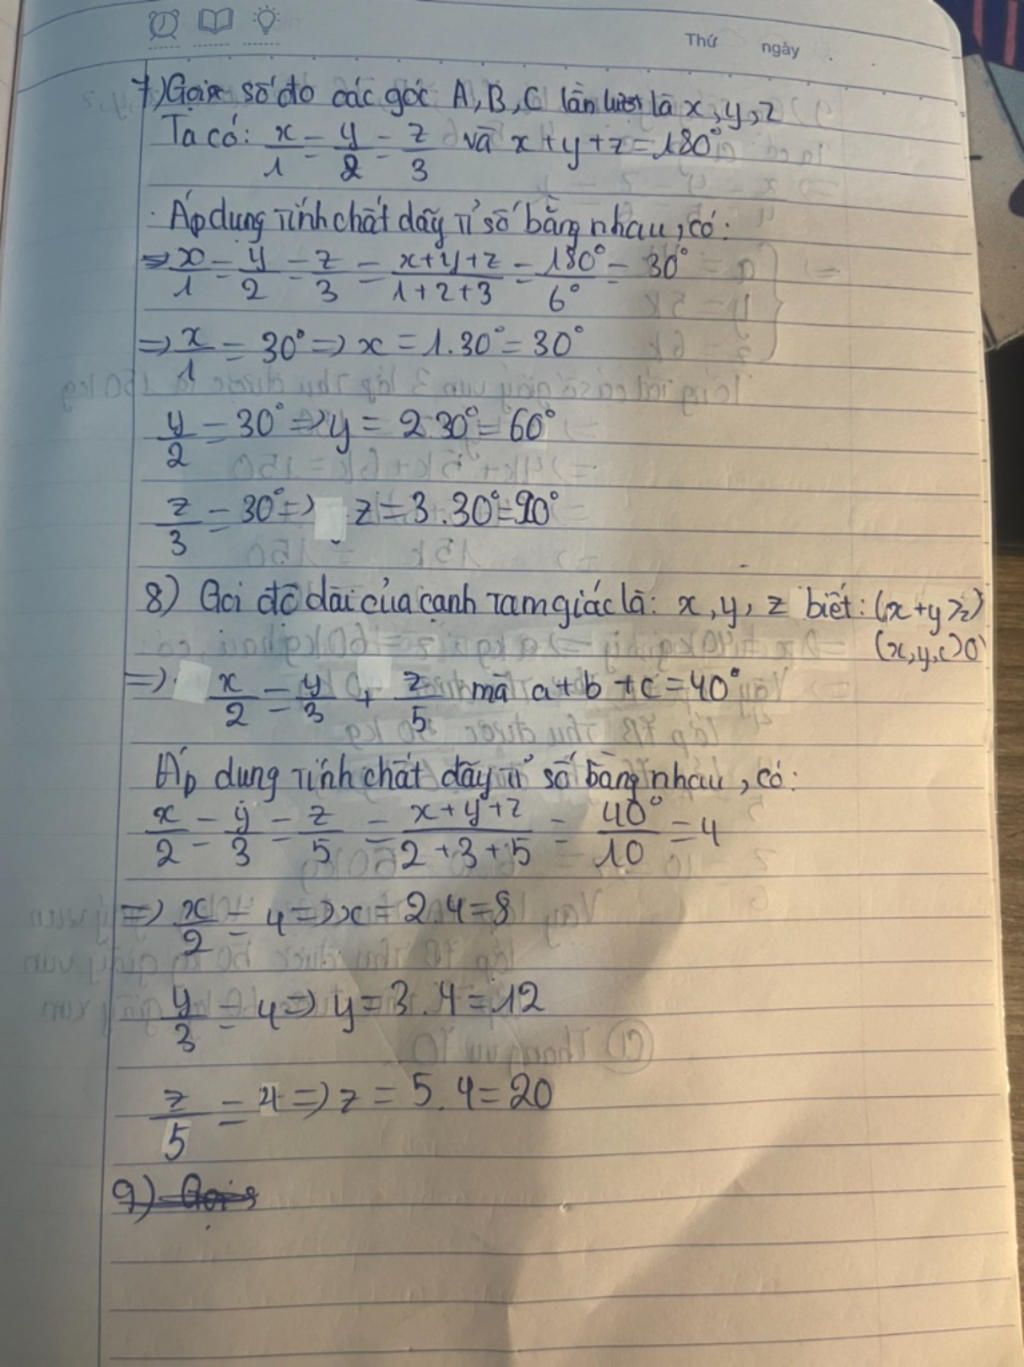 Thứ ngày
7) Gọi số đo các góc A, B, C lần lượt là x, y, z
Ta có: x/1 = y/2 = z/3 và x + y + z = 180°
Áp dụng tính chất dãy tỉ số bằng nhau, có:
=> x/1 = y/2 = z/3 = x+y+z/1+2+3 = 180°/6° = 30°
=> x/1 = 30° => x = 1.30° = 30°
y/2 = 30° => y = 2.30° = 60°
z/3 = 30° => z = 3.30° = 90°
8) Gọi độ dài của cạnh tam giác là: x, y, z biết: (x+y>z)
(x,y,c>0)
=> x/2 = y/3 + z/5 mà a + b + c = 40°
Áp dung tính chất dãy tỉ số bằng nhau, có:
x/2 = y/3 = z/5 = x+y+z/2+3+5 = 40°/10 = 4
=> x/2 = 4 => x = 2.4 = 8
y/3 = 4 => y = 3.4 = 12
z/5 = 4 => z = 5.4 = 20
9)